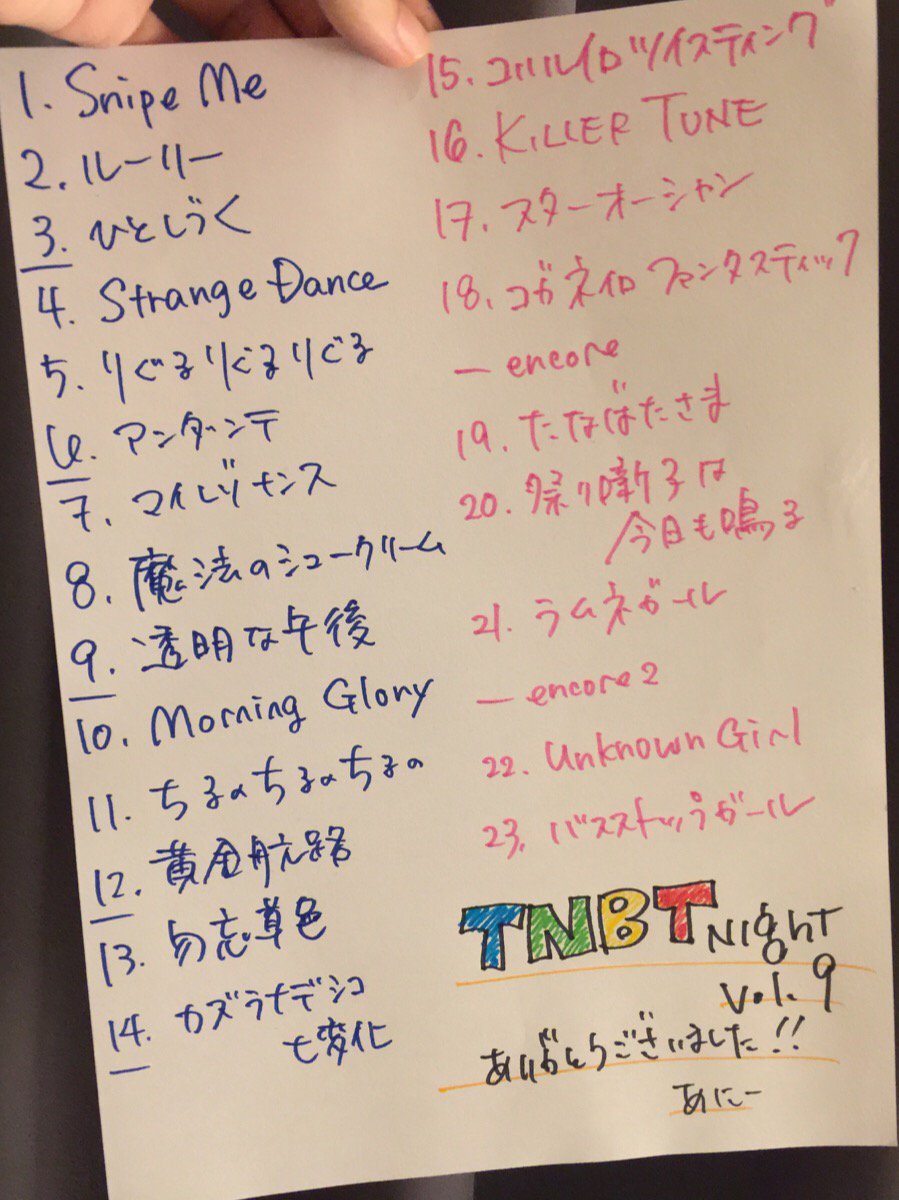 1. Snipe Me
2. ルーリー
3. ひとしずく
4. Strange Dance
5. りぐるりぐるりぐる
6. アンダンテ
7. マイレゾナンス
8. 魔法のシュークリーム
9. 透明な午後
10. Morning Glory
11. ちるのちるのちるの
12. 黄金航路
13. 勿忘草色
14. カズラナデシコ
七変化
15. コハルイロツイスティング
16. KILLER TUNE
17. スターオーシャン
18. コガネイロファンタスティック
— encore
19. たなばたさま
20. 祭り囃子は
今日も鳴る
21. ラムネガール
— encore 2
22. Unknown Girl
23. バスストップガール
TNBT Night
vol. 9
ありがとうございました!!
あにー